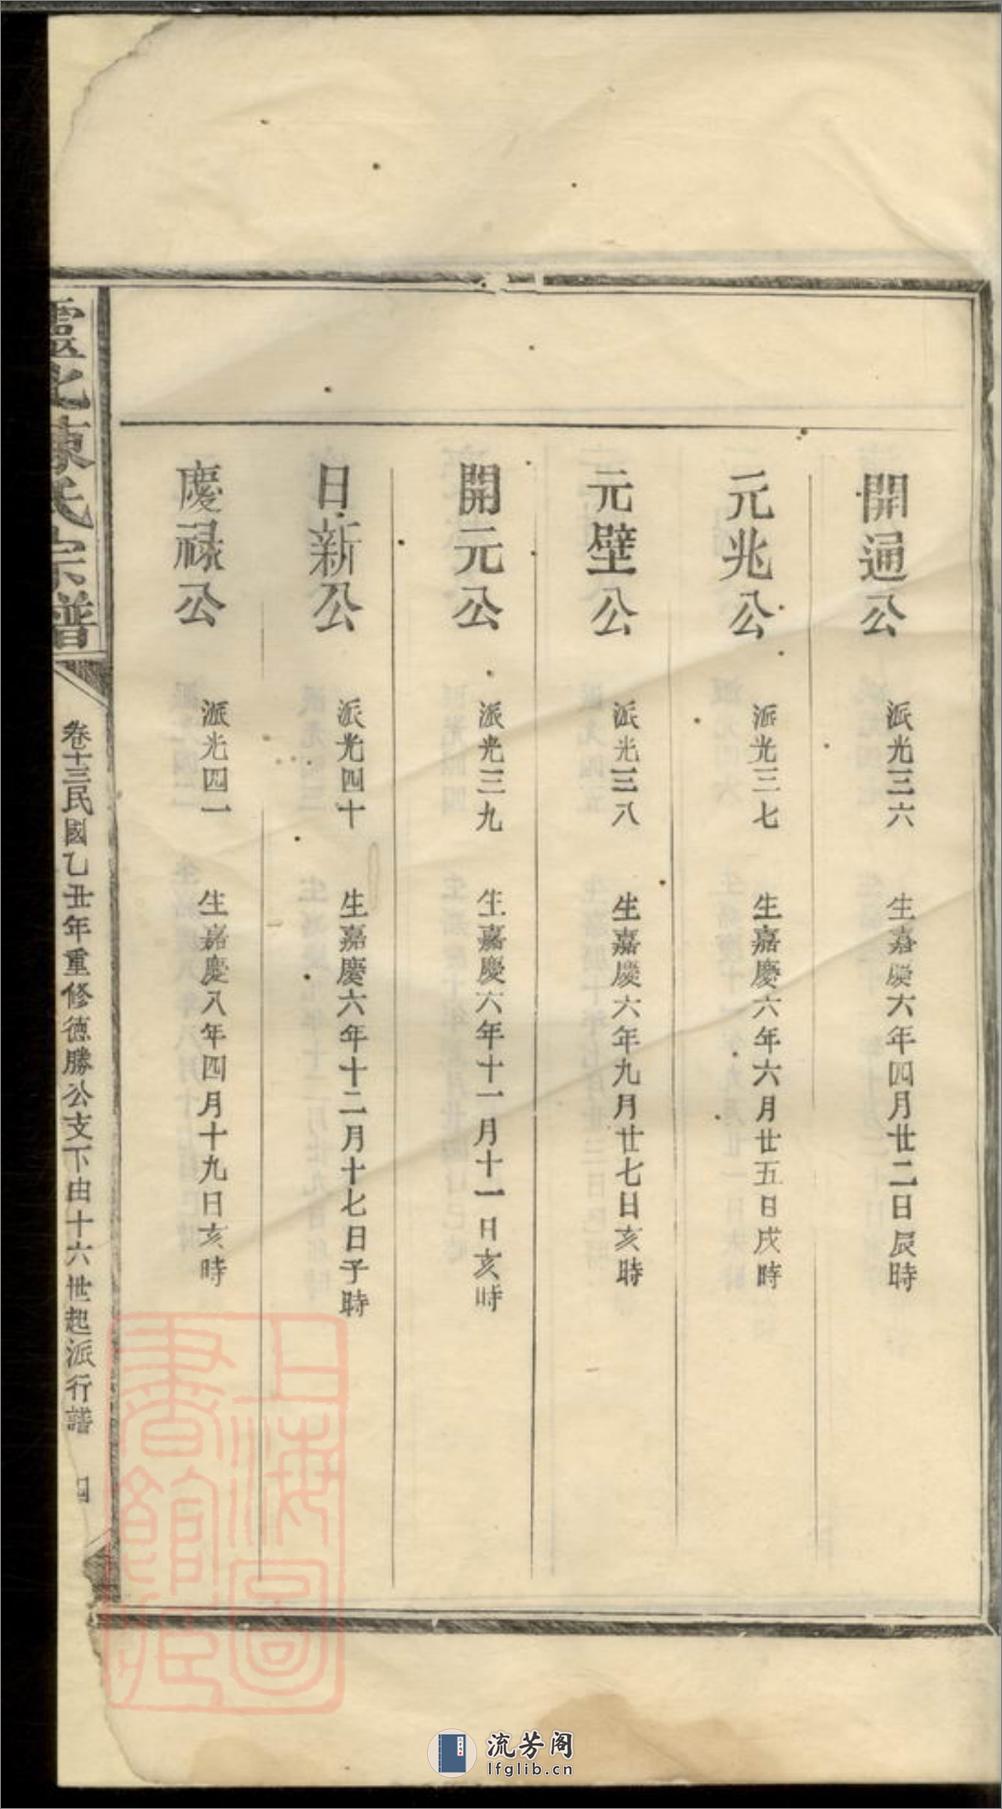 開通公 派光三六 生嘉慶六年四月廿二日辰時
元兆公 派光三七 生嘉慶六年六月廿五日戌時
元壁公 派光三八 生嘉慶六年九月廿七日亥時
開元公 派光三九 生嘉慶六年十一月十一日亥時
日新公 派光四十 生嘉慶六年十二月十七日子時
慶祿公 派光四一 生嘉慶八年四月十九日亥時
北陳氏宗譜
卷十三民國乙丑年重修德勝公支下由十六世起派行譜 四
上海圖
書館藏
流芳阁
lfglib.cn